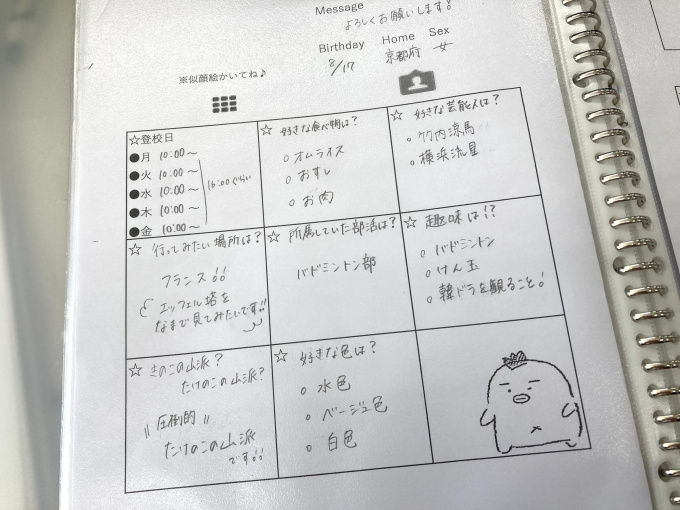 Message
よろしくお願いします!
Birthday Home Sex
8/17 京都府 女
※似顔絵かいてね♪
☆登校日
●月 10:00〜
●火 10:00〜
●水 10:00〜
●木 10:00〜
●金 10:00〜
16:00ぐらい
☆ 好きな食べ物は?
○ オムライス
○ おすし
○ お肉
☆ 好きな芸能人は?
○ 竹内涼馬
○ 横浜流星
☆ 行ってみたい場所は?
フランス!!
エッフェル塔を
なまで見てみたいです!!
☆ 所属していた部活は?
バドミントン部
☆ 趣味は!?
○ バドミントン
○ けん玉
○ 韓ドラを観ること!
☆ きのこの山派?
たけのこの山派?
"圧倒的"
たけのこの山派
です!!
☆ 好きな色は?
○ 水色
○ ベージュ色
○ 白色